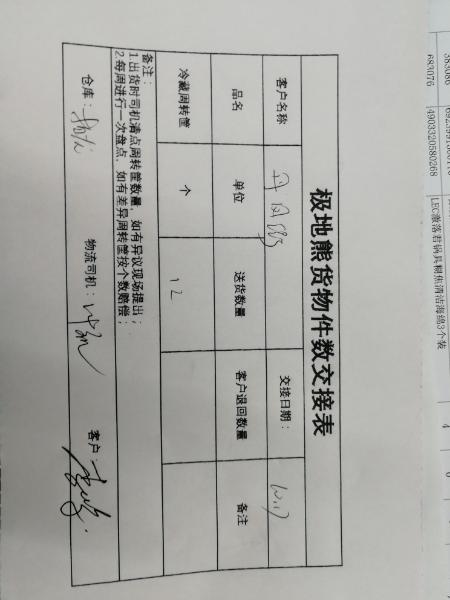 极地熊货物件数交接表
客户名称 丹凤街 交接日期：
品名 单位 送货数量 客户退回数量 备注
冷藏周转筐 个 12
备注：
1.出货时司机清点周转筐数量，如有异议现场提出；
2.每周进行一次盘点，如有差异周转筐按个数赔偿；
仓库： 物流司机： 客户
683076 4903320580268 LEC激落君锅具糊焦清洁海绵3个装 4